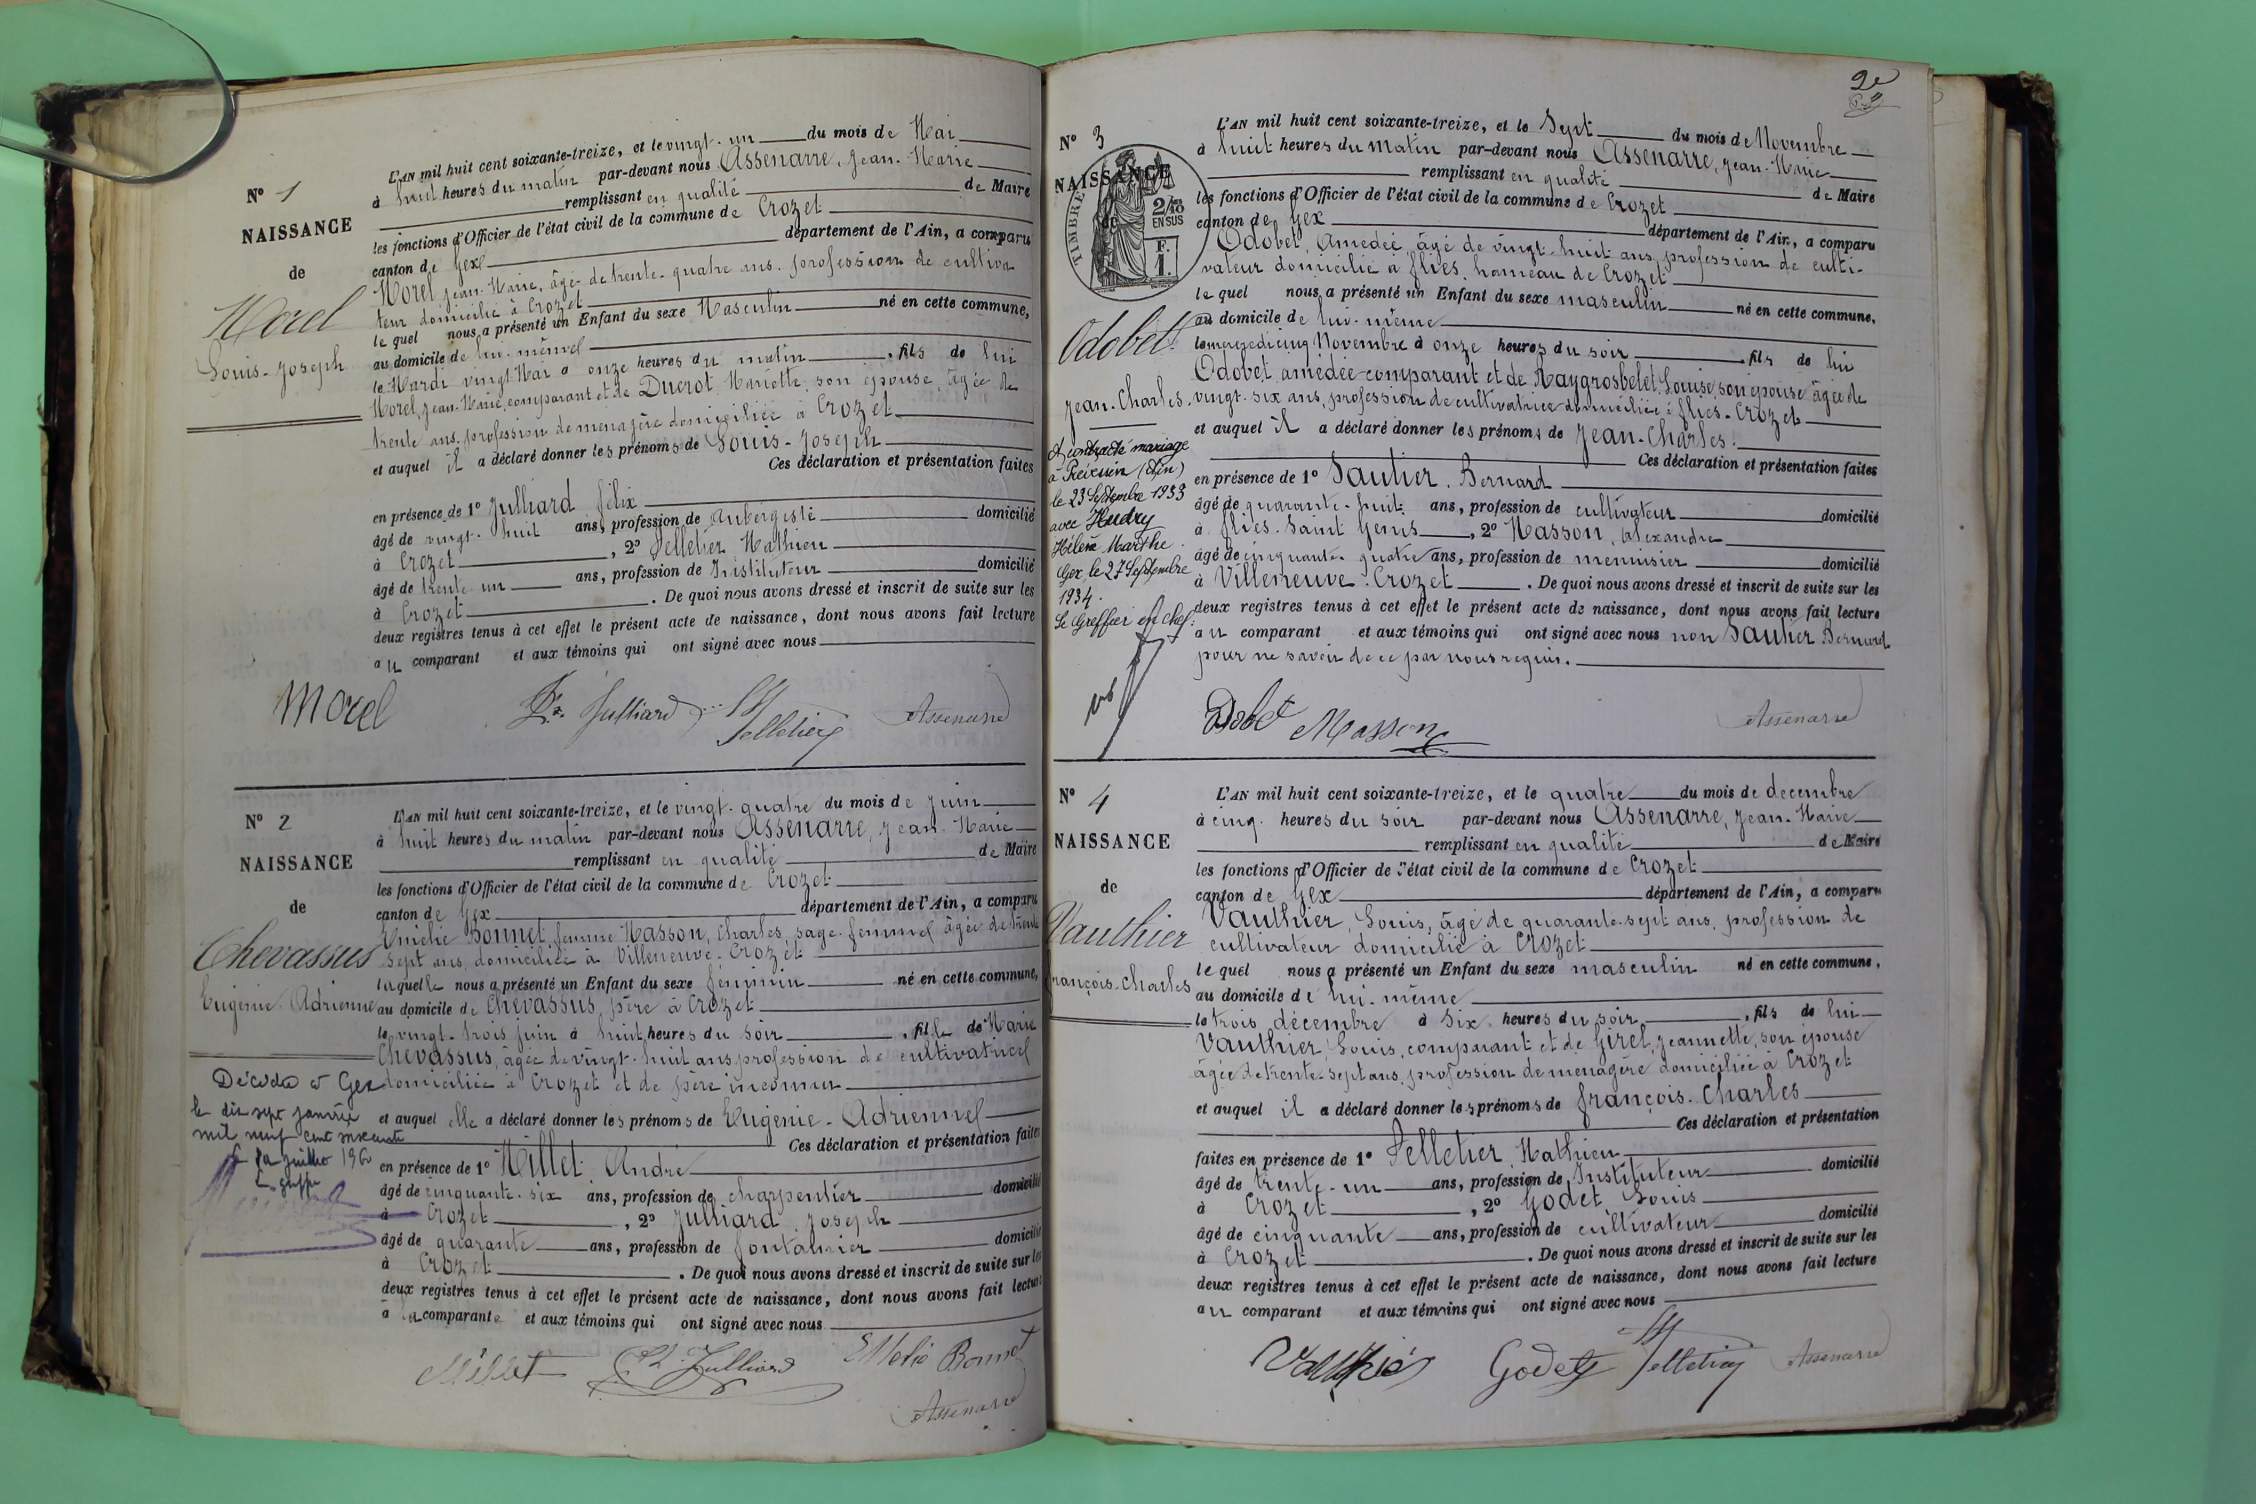 N° 1
NAISSANCE
de
Morel
Louis-Joseph
L'AN mil huit cent soixante-treize, et le vingt-un du mois de Mai
à huit heures du matin par-devant nous Assenarre, Jean-Marie
remplissant en qualité de Maire
les fonctions d'Officier de l'état civil de la commune de Crozet
canton de Gex département de l'Ain, a comparu
Morel Jean-Marie, âgé de trente-quatre ans, profession de cultiva
teur domicilié à Crozet
le quel nous a présenté un Enfant du sexe Masculin né en cette commune,
au domicile de lui-même
le Mardi vingt Mai à onze heures du matin, fils de lui
Morel, Jean-Marie, comparant et de Ducrot Mariette, son épouse, âgée de
trente ans, profession de menagère domiciliée à Crozet
et auquel il a déclaré donner les prénoms de Louis-Joseph
Ces déclaration et présentation faites
en présence de 1° Julliard félix
âgé de vingt-huit ans, profession de Aubergiste domicilié
à Crozet, 2° Pelletier, Mathieu
âgé de trente un ans, profession de Instituteur domicilié
à Crozet. De quoi nous avons dressé et inscrit de suite sur les
deux registres tenus à cet effet le présent acte de naissance, dont nous avons fait lecture
au comparant et aux témoins qui ont signé avec nous
Morel Julliard Pelletier Assenarre
N° 2
NAISSANCE
de
Chevassus
Eugénie-Adrienne
Décédée à Gex
le dix sept janvier
mil neuf cent soixante
L'AN mil huit cent soixante-treize, et le vingt-quatre du mois de Juin
à huit heures du matin par-devant nous Assenarre, Jean-Marie
remplissant en qualité de Maire
les fonctions d'Officier de l'état civil de la commune de Crozet
canton de Gex département de l'Ain, a comparu
Emélie Bonnet femme Masson, Charles, sage-femme âgée de trente
sept ans, domiciliée à Villeneuve-Crozet
laquelle nous a présenté un Enfant du sexe féminin né en cette commune,
au domicile de Chevassus, père à Crozet
le vingt-trois Juin à huit heures du soir, fille de Marie
Chevassus, âgée de vingt-huit ans, profession de cultivatrice
domiciliée à Crozet et de père inconnu
et auquel elle a déclaré donner les prénoms de Eugénie-Adrienne
Ces déclaration et présentation faites
en présence de 1° Millet, André
âgé de cinquante-six ans, profession de charpentier domicilié
à Crozet, 2° Julliard, Joseph
âgé de quarante ans, profession de fontainier domicilié
à Crozet. De quoi nous avons dressé et inscrit de suite sur les
deux registres tenus à cet effet le présent acte de naissance, dont nous avons fait lecture
à la comparante et aux témoins qui ont signé avec nous
Millet Julliard Emelie Bonnet
Assenarre
2e
N° 3
NAISSANCE
de
TIMBRE
2/10 EN SUS
F. 1.
Odobet
Jean-Charles
A contracté mariage
à Préssin (Ain)
le 23 Septembre 1933
avec Hudry
Hélène Marthe.
Gex, le 27 Septembre
1934.
Le Greffier en Chef:
L'AN mil huit cent soixante-treize, et le Sept du mois de Novembre
à huit heures du matin par-devant nous Assenarre, Jean-Marie
remplissant en qualité de Maire
les fonctions d'Officier de l'état civil de la commune de Crozet
canton de Gex département de l'Ain, a comparu
Odobet, Amédée, âgé de vingt-huit ans, profession de culti-
vateur domicilié à flies, hameau de Crozet
le quel nous a présenté un Enfant du sexe masculin né en cette commune,
au domicile de lui-même
le mercredi cinq Novembre à onze heures du soir, fils de lui
Odobet, amédée comparant et de Raygrosbelet, Louise, son épouse âgée de
vingt-six ans, profession de cultivatrice domiciliée à flies-Crozet
et auquel il a déclaré donner les prénoms de Jean-Charles
Ces déclaration et présentation faites
en présence de 1° Sautier, Bernard
âgé de quarante-huit ans, profession de cultivateur domicilié
à flies-Saint Genis, 2° Masson, Alexandre
âgé de cinquante-quatre ans, profession de menuisier domicilié
à Villeneuve-Crozet. De quoi nous avons dressé et inscrit de suite sur les
deux registres tenus à cet effet le présent acte de naissance, dont nous avons fait lecture
au comparant et aux témoins qui ont signé avec nous non Sautier Bernard
pour ne savoir de ce par nous requis.
Odobet Masson Assenarre
N° 4
NAISSANCE
de
Vauthier
François-Charles
L'AN mil huit cent soixante-treize, et le quatre du mois de decembre
à cinq heures du soir par-devant nous Assenarre, Jean-Marie
remplissant en qualité de Maire
les fonctions d'Officier de l'état civil de la commune de Crozet
canton de Gex département de l'Ain, a comparu
Vauthier, Louis, âgé de quarante-sept ans, profession de
cultivateur domicilié à Crozet
le quel nous a présenté un Enfant du sexe masculin né en cette commune,
au domicile de lui-même
le trois décembre à six heures du soir, fils de lui
Vauthier, Louis, comparant et de Girel, Jeannette, son épouse
âgée de trente-sept ans, profession de menagère domiciliée à Crozet
et auquel il a déclaré donner les prénoms de françois-Charles
Ces déclaration et présentation
faites en présence de 1° Pelletier, Mathieu
âgé de trente-un ans, profession de Instituteur domicilié
à Crozet, 2° Godet Louis
âgé de cinquante ans, profession de cultivateur domicilié
à Crozet. De quoi nous avons dressé et inscrit de suite sur les
deux registres tenus à cet effet le présent acte de naissance, dont nous avons fait lecture
au comparant et aux témoins qui ont signé avec nous
Vauthier Godet Pelletier Assenarre